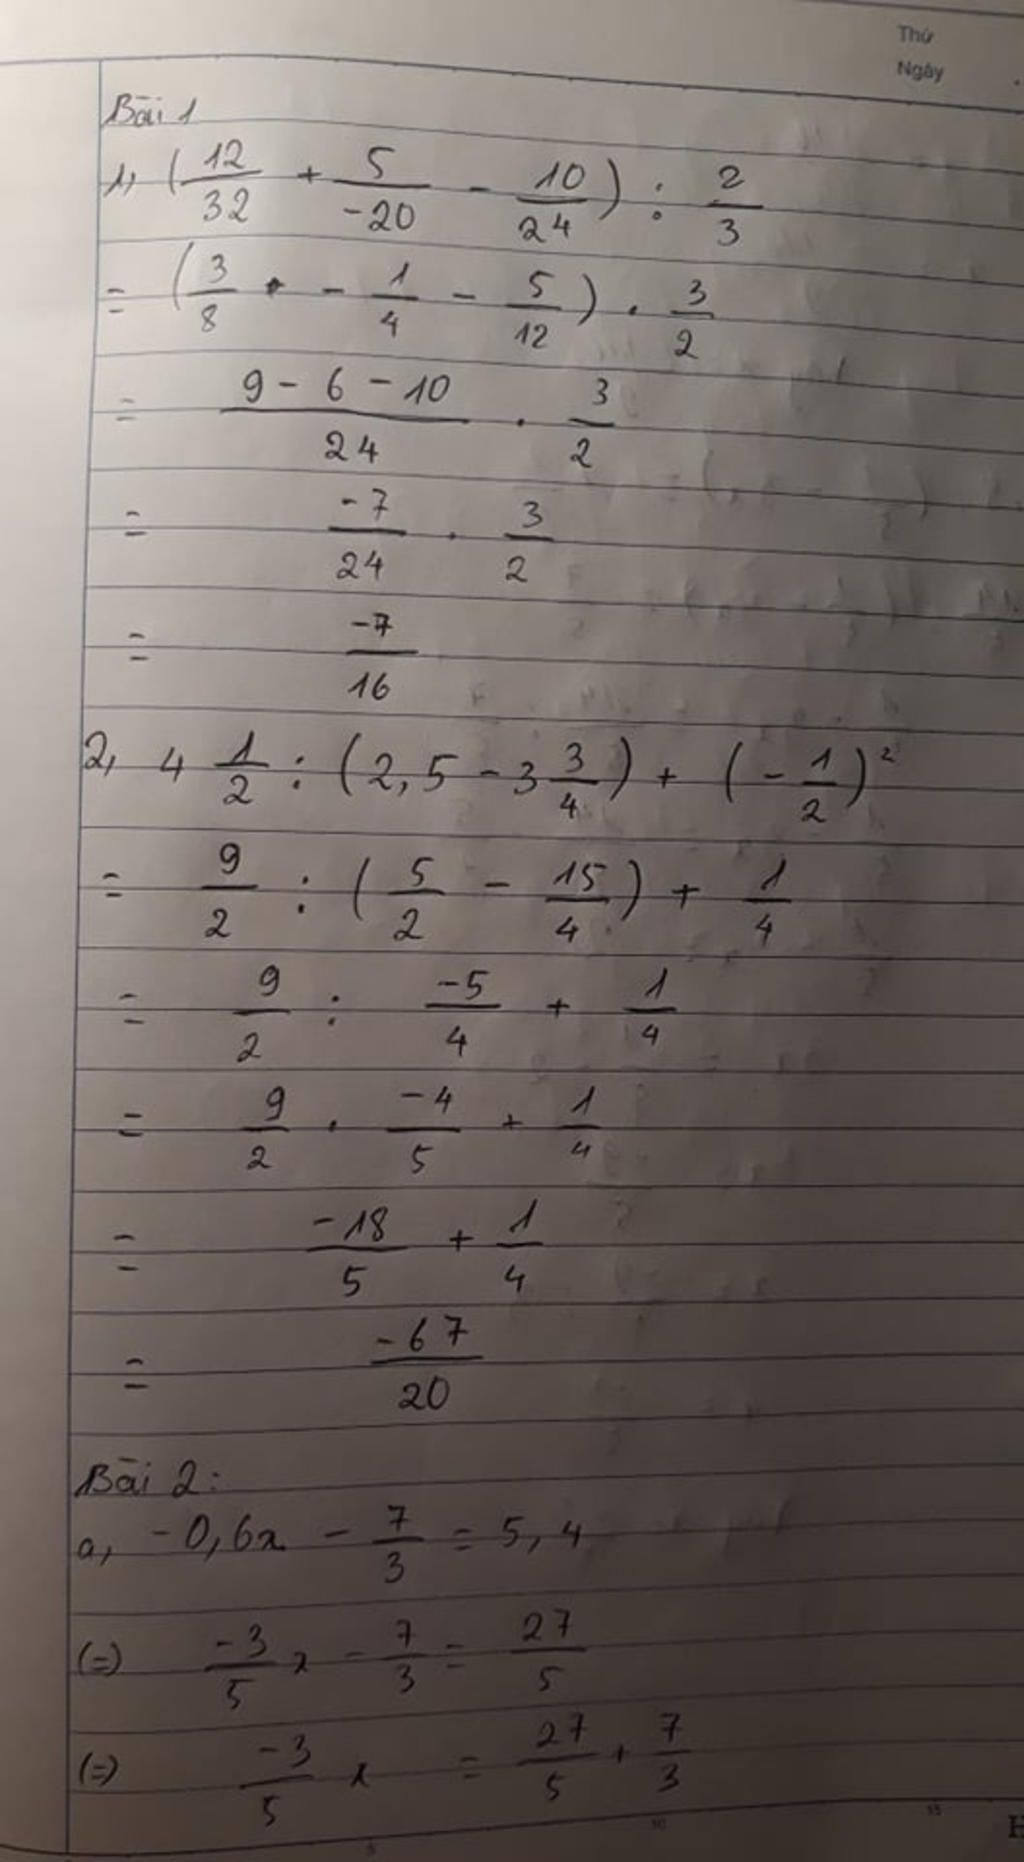 Thứ
Ngày
Bài 1
1, (12/32 + 5/-20 - 10/24) : 2/3
= (3/8 - 1/4 - 5/12) . 3/2
= (9 - 6 - 10)/24 . 3/2
= -7/24 . 3/2
= -7/16
2, 4 1/2 : (2,5 - 3 3/4) + (-1/2)²
= 9/2 : (5/2 - 15/4) + 1/4
= 9/2 : -5/4 + 1/4
= 9/2 . -4/5 + 1/4
= -18/5 + 1/4
= -67/20
Bài 2:
a, -0,6x - 7/3 = 5,4
(=) -3/5 x - 7/3 = 27/5
(=) -3/5 x = 27/5 + 7/3
5 10 15 H